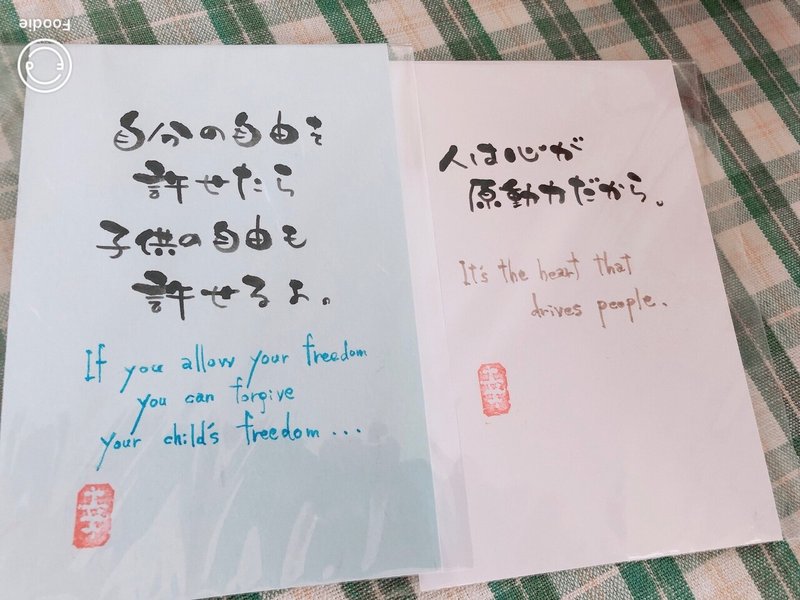 Foodie
自分の自由を
許せたら
子供の自由も
許せるよ。
If you allow your freedom
you can forgive
your child's freedom...
人は心が
原動力だから。
It's the heart that
drives people.